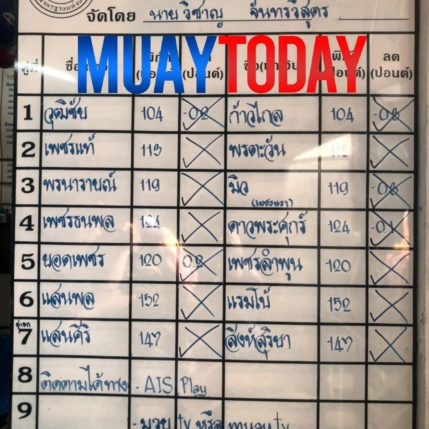 จัดโดย นายวิชาญ จันทรวิสูตร
MUAYTODAY
คู่ที่ (ปอนด์) (ปอนด์) ลด (ปอนด์)
1 วุฒิชัย 104 -08 ก้าวไกล 104 -08
2 เพชรแท้ 113 พรตะวัน
3 พรนารายณ์ 119 มิว 119 -08
4 เพชรธนพล 124 ดาวพระศุกร์ 124 -04
5 ยอดเพชร 120 08 เพชรลำพูน 120
6 แสนพล 152 แรมโบ้ 152
7 แสนคีรี 147 สิงห์สุริยา 147
8 ติดตามได้ทาง - AIS Play
9 - มวยtv หรือ